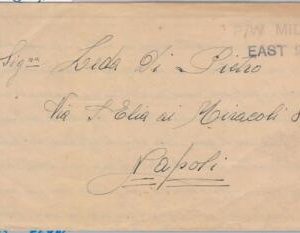 P/W MIL
EAST
Sigra Leda Di Pietro
Via S. Elia ai Miracoli 8
Napoli